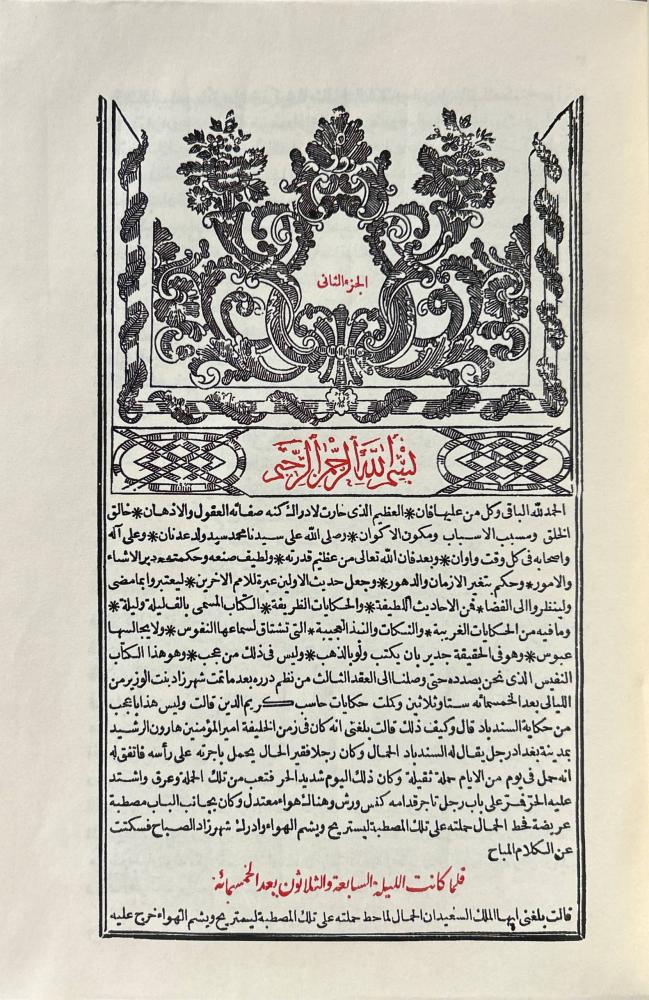 الجزء الثانى
بسم الله الرحمن الرحيم
الحمد لله الباقى وكل من عليها فان * العظيم الذى حارت لادراك كنه صفاته العقول والاذهان * خالق
الخلق ومسبب الاسباب ومكون الاكوان * وصلى الله على سيدنا محمد سيد ولد عدنان * وعلى آله
واصحابه فى كل وقت واوان * وبعد فان الله تعالى من عظيم قدرته * ولطيف صنعه وحكمته * دبر الاشياء
والامور * وحكم بتغير الازمان والدهور * وجعل حديث الاولين عبرة للامم الاخرين * ليعتبروا بما مضى
ولينظروا الى القضا * فمن الاحاديث اللطيفة * والحكايات الظريفة * الكتاب المسمى بالف ليلة وليلة *
وما فيه من الحكايات الغريبة * والنكات والنبذ العجيبة * التى تشتاق لسماعها النفوس * ولا يجالسها
عبوس * وهو فى الحقيقة جدير بان يكتب ولو بالذهب * وليس فى ذلك من عجب * وهو هذا الكتاب
النفيس الذى نحن بصدده حتى وصلنا الى العقد الثالث من نظم درره بعد ما تمت شهرزاد بنت الوزير من
الليالى بعد الخمسمائه ستا وثلاثين وكملت حكايات حاسب كريم الدين قالت وليس هذا باعجب
من حكاية السندباد قال وكيف ذلك قالت بلغنى انه كان فى زمن الخليفة امير المؤمنين هارون الرشيد
بمدينة بغداد رجل يقال له السندباد الحمال وكان رجلا فقير الحال يحمل باجرته على رأسه فاتفق له
انه حمل فى يوم من الايام حملة ثقيلة وكان ذلك اليوم شديد الحر فتعب من تلك الحملة وعرق واشتد
عليه الحر فمر على باب رجل تاجر قدامه كنس ورش وهناك هواء معتدل وكان بجانب الباب مصطبة
عريضة فحط الحمال حملته على تلك المصطبة ليستريح ويشم الهواء وادرك شهرزاد الصباح فسكتت
عن الكلام المباح
فلما كانت الليلة السابعة والثلاثون بعد الخمسمائة
قالت بلغنى ايها الملك السعيد ان الحمال لما حط حملته على تلك المصطبة ليستريح ويشم الهواء خرج عليه